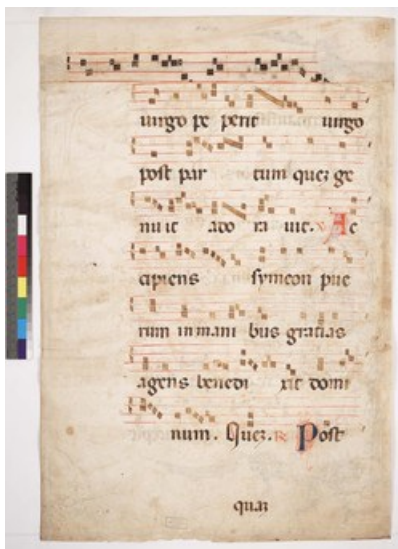 uirgo pe perit uirgo
post par tum quez ge
nuit ado ra uit. ℣ Ac
cipiens symeon pue
rum in mani bus gratias
agens benedi xit domi
num. Quez. ℟ Post
quaz